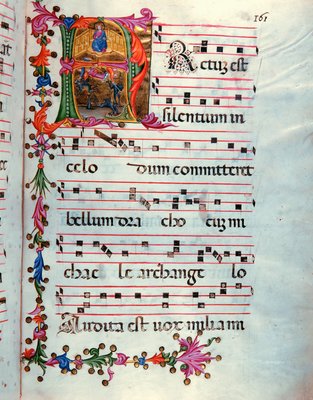 161
FActuz est
silentium in
celo dum committeret
bellum dra cho cuz mi
chae le archange lo
Audita est vox miliam